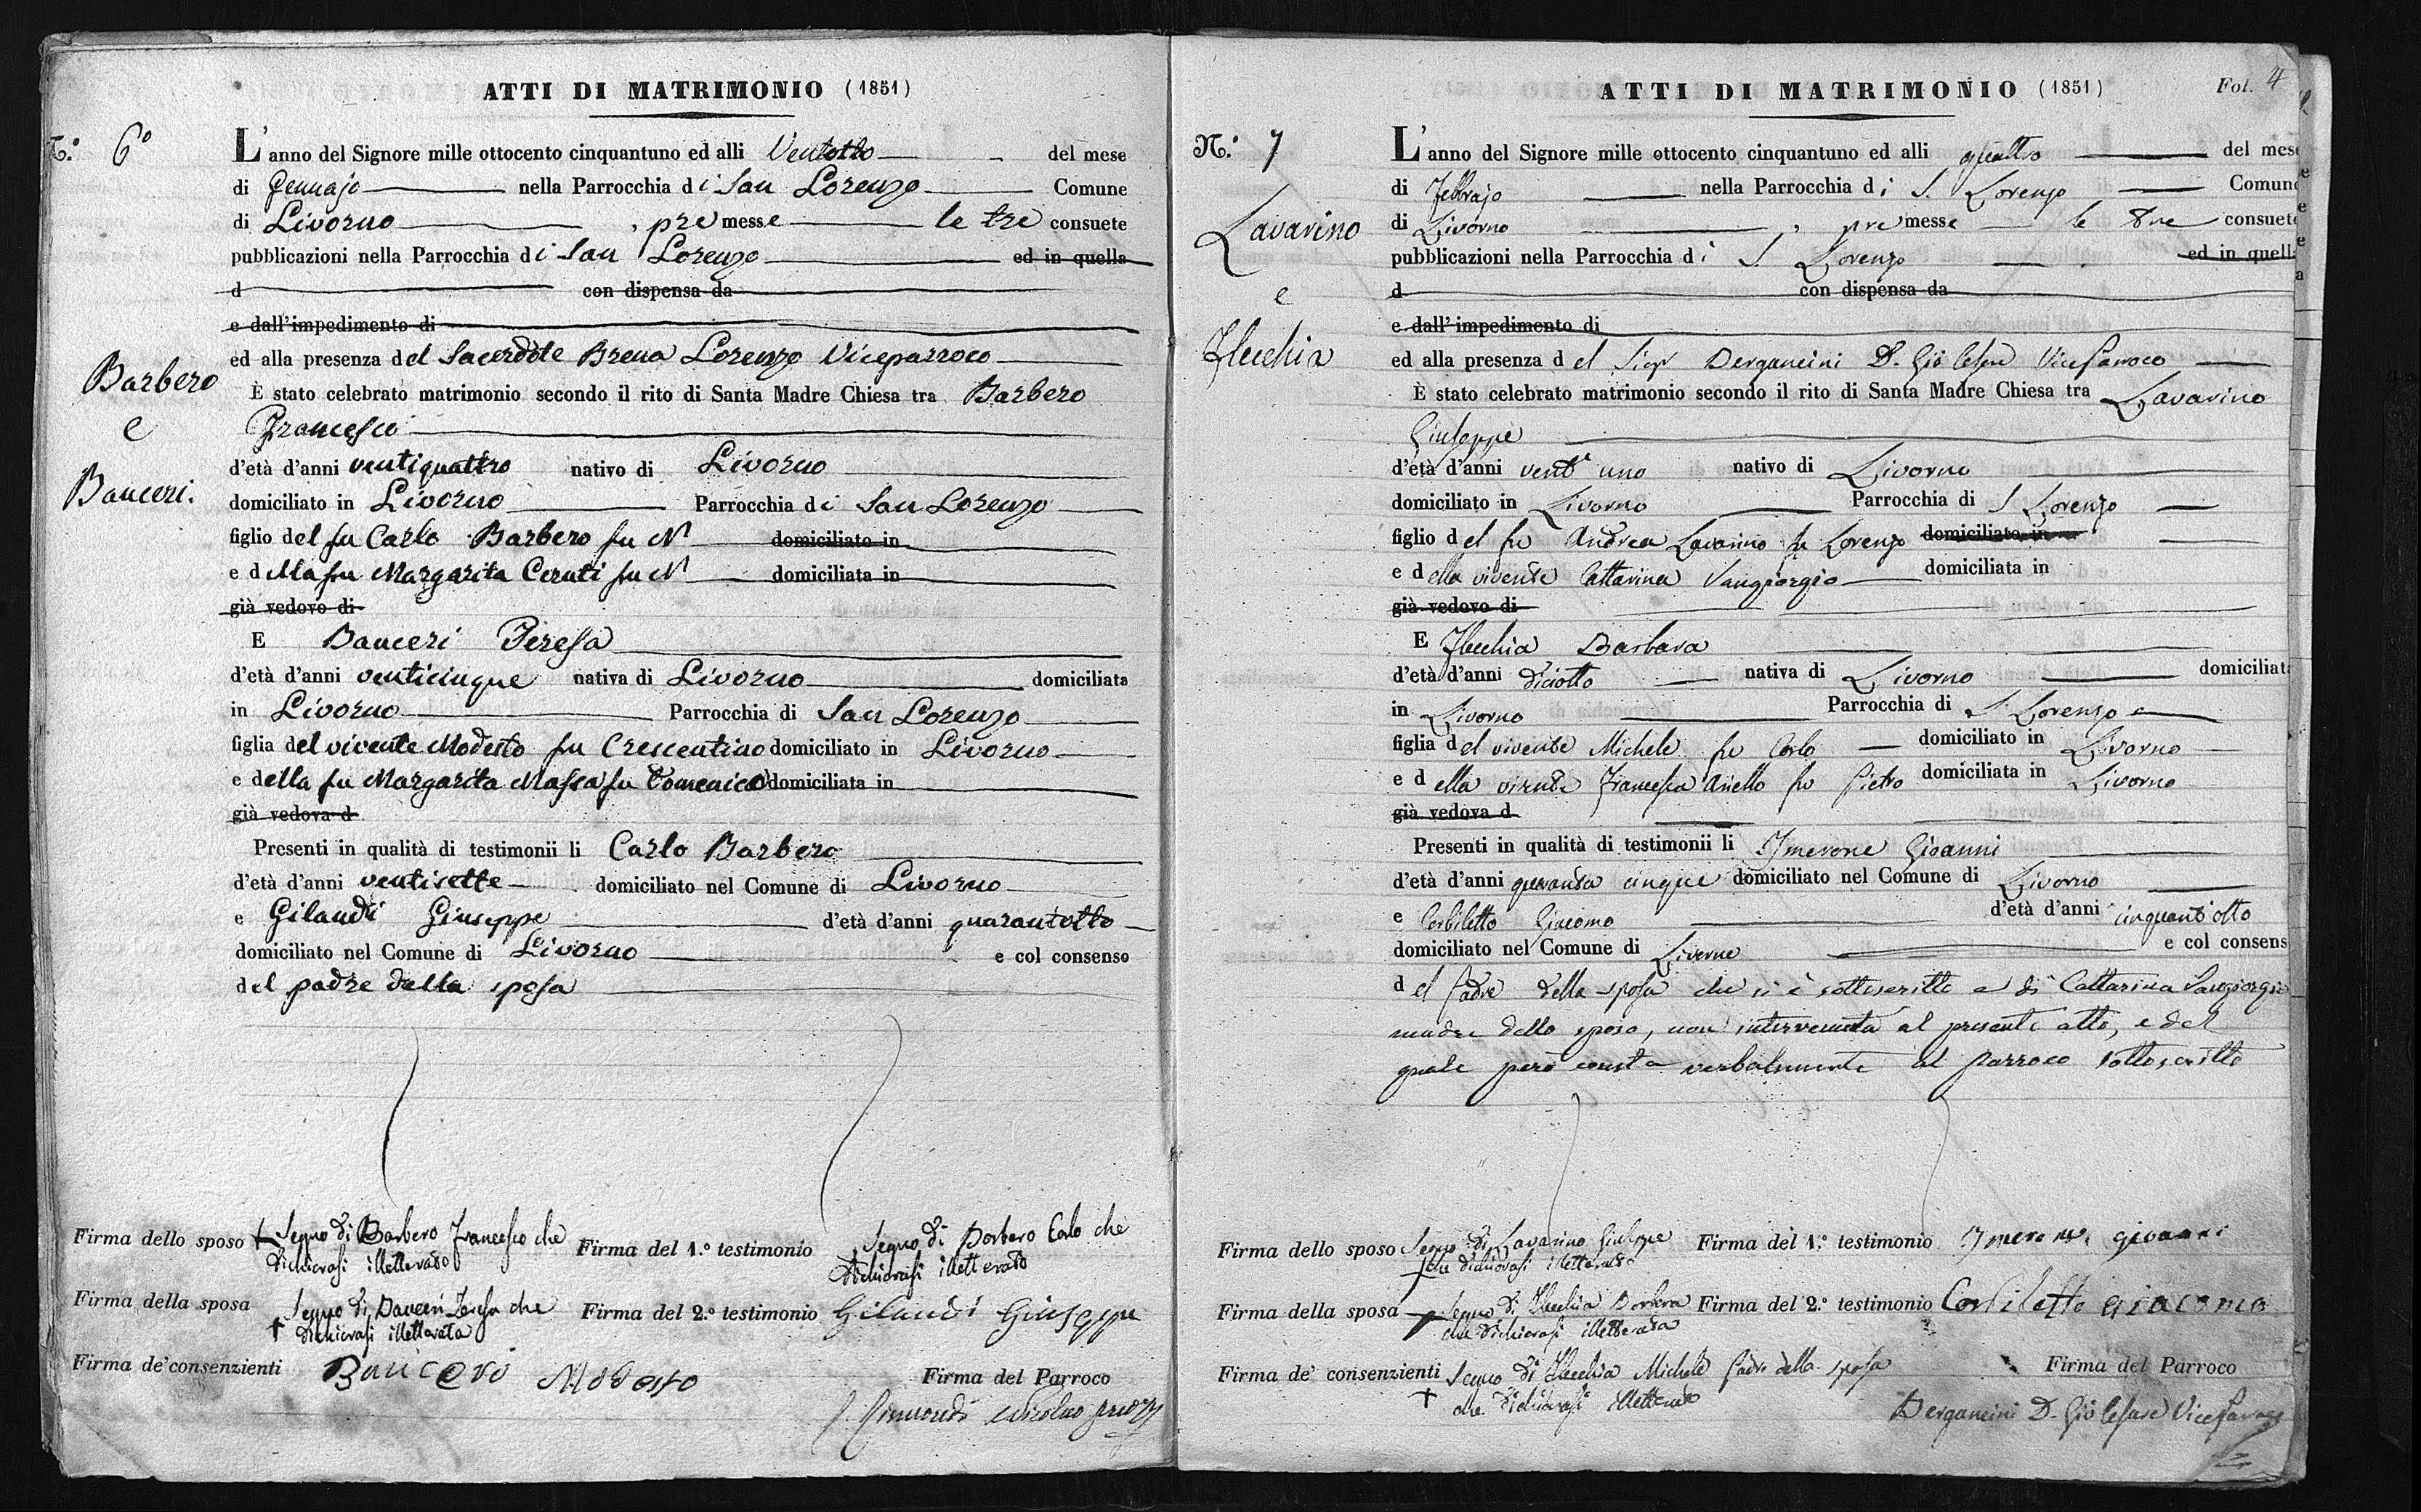 ATTI DI MATRIMONIO (1851)
N.º 6º
L'anno del Signore mille ottocento cinquantuno ed alli Ventotto del mese
di Gennajo nella Parrocchia di San Lorenzo Comune
di Livorno, premesse le tre consuete
pubblicazioni nella Parrocchia di San Lorenzo ed in quella
d con dispensa da
e dall'impedimento di
ed alla presenza del Sacerdote Brena Lorenzo Viceparroco
Barbero
e
Banceri.
È stato celebrato matrimonio secondo il rito di Santa Madre Chiesa tra Barbero
Francesco
d'età d'anni ventiquattro nativo di Livorno
domiciliato in Livorno Parrocchia di San Lorenzo
figlio del fu Carlo Barbero fu N domiciliato in
e della fu Margarita Ceruti fu N domiciliata in
già vedovo di
E Banceri Teresa
d'età d'anni venticinque nativa di Livorno domiciliata
in Livorno Parrocchia di San Lorenzo
figlia del vivente Modesto fu Crescentino domiciliato in Livorno
e della fu Margarita Massa fu Domenico domiciliata in
già vedova d
Presenti in qualità di testimonii li Carlo Barbero
d'età d'anni ventisette domiciliato nel Comune di Livorno
e Gilaudi Giuseppe d'età d'anni quarantotto
domiciliato nel Comune di Livorno e col consenso
del padre della sposa
Firma dello sposo + Segno di Barbero Francesco che
dichiarasi illetterato
Firma del 1.º testimonio Segno di Barbero Carlo che
dichiarasi illetterato
Firma della sposa + Segno di Banceri Teresa che
dichiarasi illetterata
Firma del 2.º testimonio Gilaudi Giuseppe
Firma de' consenzienti Banceri Modesto
Firma del Parroco
ATTI DI MATRIMONIO (1851) Fol. 4
N.º 7
L'anno del Signore mille ottocento cinquantuno ed alli quattro del mese
di Febbrajo nella Parrocchia di S. Lorenzo Comune
di Livorno, premesse le tre consuete
pubblicazioni nella Parrocchia di S. Lorenzo ed in quella
d con dispensa da
e dall'impedimento di
Lavarino
e
Flecchia
ed alla presenza del Sigr Bergancini D. Gio Cesare Viceparroco
È stato celebrato matrimonio secondo il rito di Santa Madre Chiesa tra Lavarino
Giuseppe
d'età d'anni vent'uno nativo di Livorno
domiciliato in Livorno Parrocchia di S Lorenzo
figlio del fu Andrea Lavarino fu Lorenzo domiciliato in
e della vivente Cattarina Vangiorgio domiciliata in
già vedovo di
E Flecchia Barbara
d'età d'anni diciotto nativa di Livorno domiciliata
in Livorno Parrocchia di S. Lorenzo
figlia del vivente Michele fu Carlo domiciliato in Livorno
e della vivente Francesca Aniello fu Pietro domiciliata in Livorno
già vedova d
Presenti in qualità di testimonii li Imerone Gioanni
d'età d'anni quaranta cinque domiciliato nel Comune di Livorno
e Corbiletto Giacomo d'età d'anni cinquant'otto
domiciliato nel Comune di Livorno e col consens
del Padre della sposa che si è sottoscritto e di Cattarina Sangiorgio
madre dello sposo, non intervenuta al presente atto, e del
quale però consta verbalmente al parroco sottoscritto
Firma dello sposo Segno di Lavarino Giuseppe
+ che dichiarasi illetterato
Firma del 1.º testimonio Imerone giovanni
Firma della sposa + Segno di Flecchia Barbara
che dichiarasi illetterata
Firma del 2.º testimonio Corbiletto giacomo
Firma de' consenzienti Segno di Flecchia Michele padre della sposa
+ che dichiarasi illetterato
Firma del Parroco
Bergancini D. Gio Cesare Viceparroco